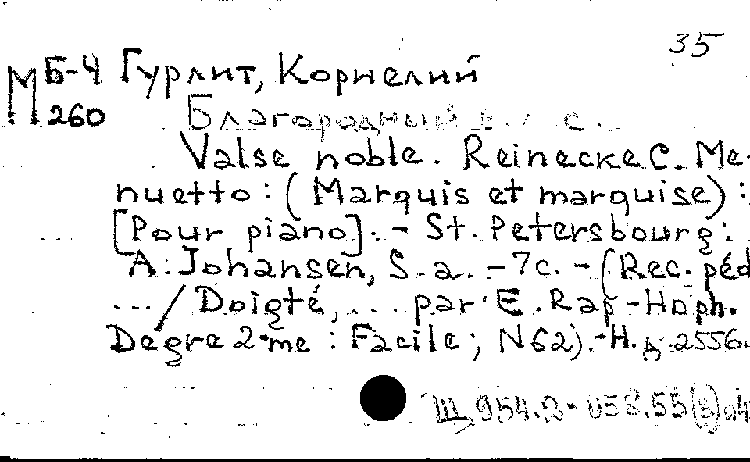 35
М Б-4 Гурлит, Корнелий
260 Благородный
Valse noble. Reinecke C. Me-
nuetto: (Marquis et marquise):
[Pour piano]. - St. Petersbourg:
A. Johansen, S. a. - 7c. - (Rec. péd
... / Doigté, ... par E. Rap-Hoph.
Degre 2-me : Facile; N62). - Н. д. 2556.